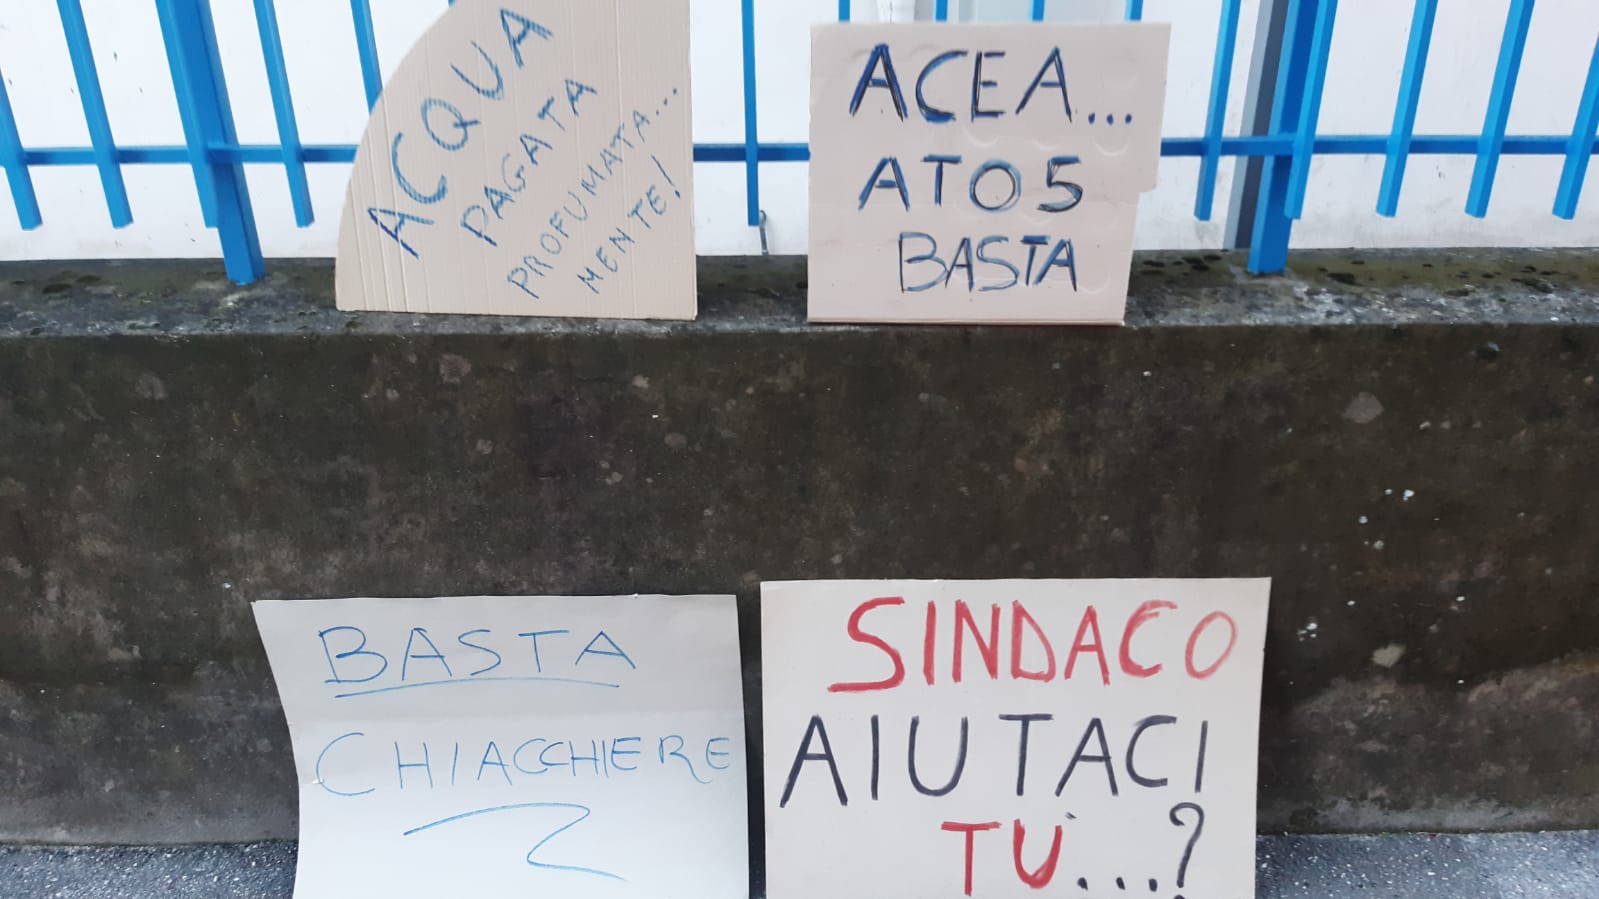 ACQUA
PAGATA
PROFUMATA...
MENTE!
ACEA...
ATO5
BASTA
BASTA
CHIACCHIERE
SINDACO
AIUTACI
TU...?